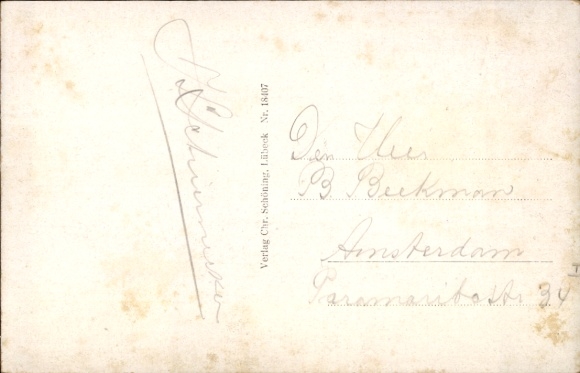 Verlag Chr. Schöning, Lübeck Nr. 18407
Den Heer
B Beekman
Amsterdam
Paramaribostr 34